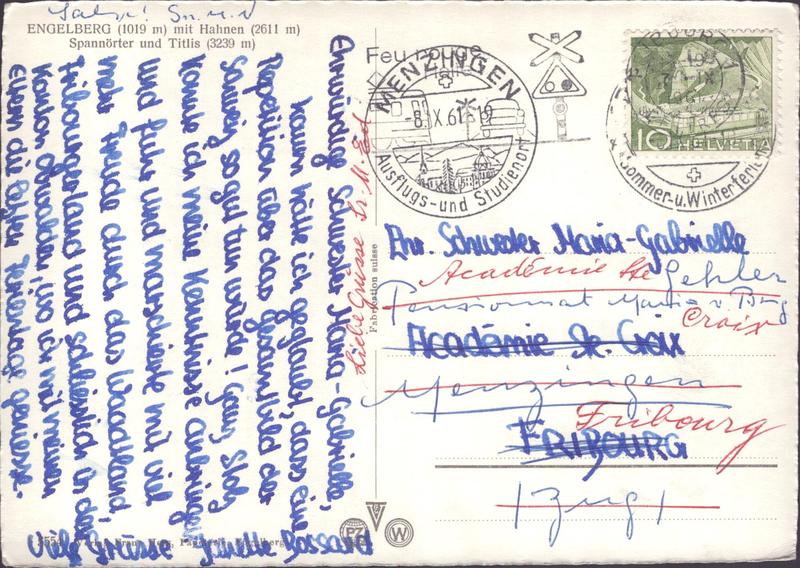 ENGELBERG (1019 m) mit Hahnen (2611 m)
Spannörter und Titlis (3239 m)
Ehrwürdige Schwester Maria-Gabrielle,
kaum hätte ich geglaubt, dass eine
Repetition über das Gesamtbild der
Schweiz so gut tun würde! Ganz Stolz
konnte ich meine Kenntnisse anbringen
und fuhr und marschierte mit viel
mehr Freude durch das Waadtland,
Fribourgerland und schliesslich in den
Kanton Obwalden, wo ich mit meinen
Eltern die Ferientage geniesse.
Viele Grüsse Janette Bossard
Liebe Grüsse Sr. M.
Fabrication suisse
Feu rouge
MENZINGEN
-8. X. 61-19
Ausflugs- und Studienort
Sommer- u. Winterferien
10 HELVETIA
Ehr. Schwester Maria-Gabrielle
Académie Ste Gehler
Pensionnat Maria v. Berg
Croix
Académie Ste. Croix
Menzingen
Fribourg
FRIBOURG
(Zug)
PZ
W